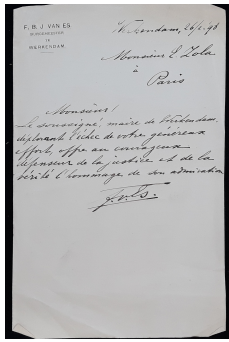 F. B. J. VAN ES
BURGEMEESTER
TE
WERKENDAM.
Werkendam, 26/2 98
Monsieur E. Zola
à
Paris
Monsieur!
Le soussigné maire de Werkendam,
déplorant l'échec de votre généreux
effort, offre au courageux
défenseur de la justice et de la
vérité l'hommage de son admiration
F. v. Es.